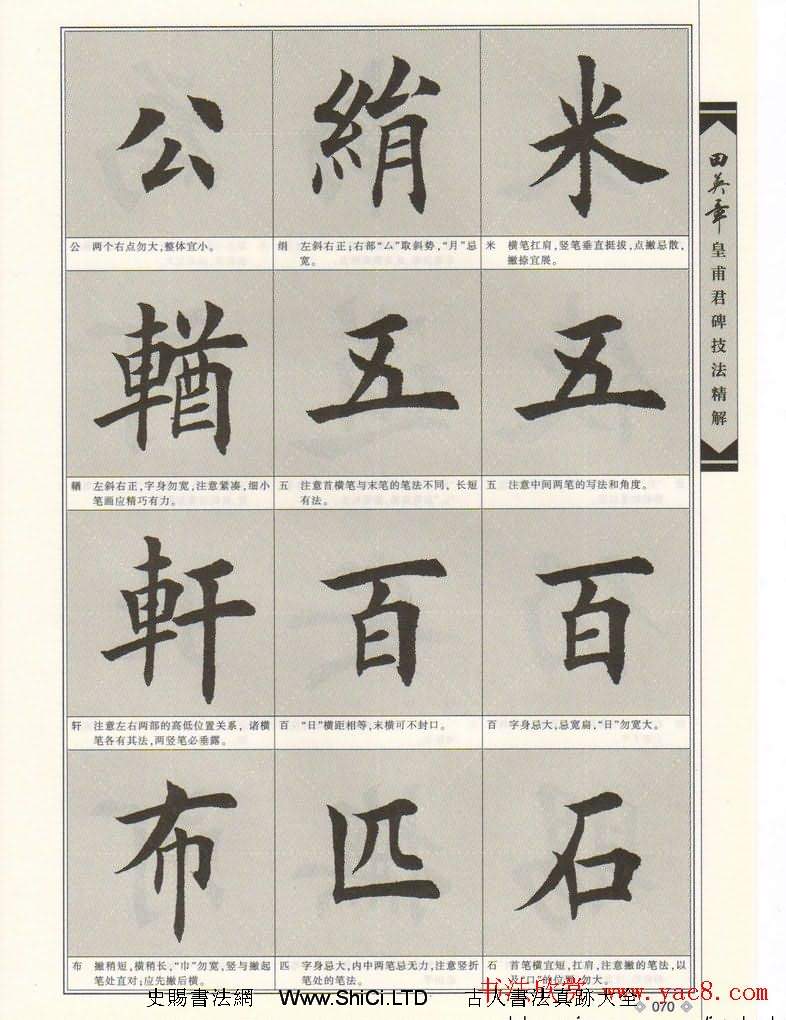 公 絹 米
公 两个右点勿大,整体宜小。
绢 左斜右正;右部“厶”取斜势,“月”忌
宽。
米 横笔扛肩,竖笔垂直挺拔,点撇忌散,
撇捺宜展。
輶 五 五
左斜右正,字身勿宽,注意紧凑,细小
笔画应精巧有力。
五 注意首横笔与末笔的笔法不同,长短
有法。
五 注意中间两笔的写法和角度。
軒 百 百
轩 注意左右两部的高低位置关系,诸横
笔各有其法,两竖笔必垂露。
百 “日”横距相等,末横可不封口。
百 字身忌大,忌宽扁,“日”勿宽大。
布 匹 石
布 撇稍短,横稍长,“巾”勿宽,竖与撇起
笔处直对;应先撇后横。
匹 字身忌大,内中两笔忌无力,注意竖折
笔处的笔法。
石 首笔横宜短,扛肩,注意撇的笔法,以
及“口”的位置,勿大。
田英章
皇甫君碑技法精解
070
史賜書法網 Www.ShiCi.LTD 古人書法真跡大全
书法欣赏 www.yac8.com